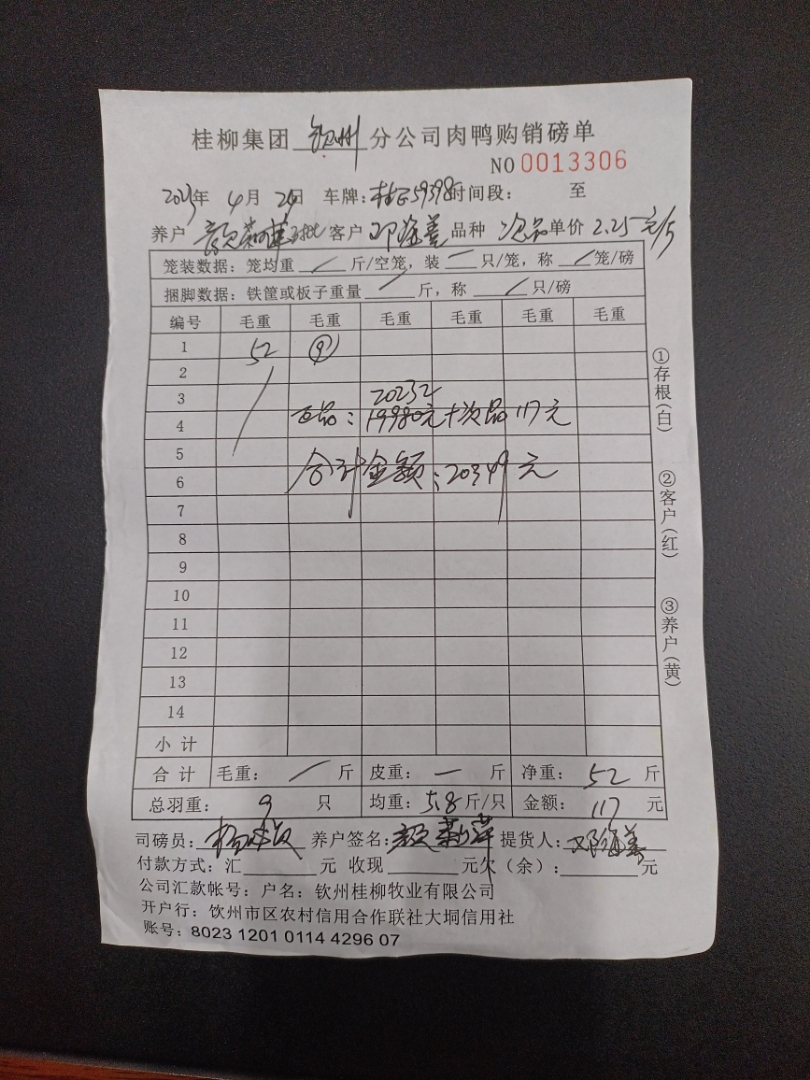 桂柳集团 钦州 分公司肉鸭购销磅单
NO 0013306
2023年 4月 2 日 车牌: 桂 59398 时间段: 至
养户 颜 批 客户 邓海善 品种 次品 单价 2.25元/斤
笼装数据: 笼均重 / 斤/空笼, 装 一 只/笼, 称 / 笼/磅
捆脚数据: 铁筐或板子重量 一 斤, 称 / 只/磅
编号 毛重 毛重 毛重 毛重 毛重 毛重
1 52 ⑨
2
3 20232
4 正品: 19980元+次品117元
5
6 合计金额: 20349元
7
8
9
10
11
12
13
14
小计
合计 毛重: / 斤 皮重: 一 斤 净重: 52 斤
总羽重: 9 只 均重: 5.8 斤/只 金额: 117 元
司磅员: 杨 养户签名: 颜 萍 提货人: 邓海善
付款方式: 汇 元 收现 元欠(余): 元
公司汇款帐号: 户名: 钦州桂柳牧业有限公司
开户行: 钦州市区农村信用合作联社大垌信用社
账号: 8023 1201 0114 4296 07
①存根(白)
②客户(红)
③养户(黄)